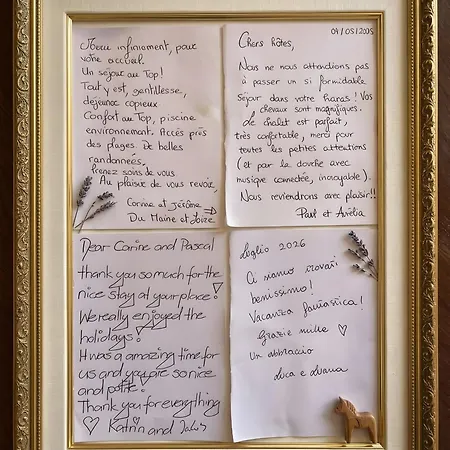 infiniment, pour
votre accueil.
Un séjour au Top!
Tout y est, gentillesse,
déjeuner copieux
Confort au Top, piscine
environnement. Accès près
des plages. De belles
randonnées,
Prenez soins de vous
Au plaisir de vous revoir,
Corine et Jérôme
Du Maine et Loire
09/05/2005
Chers hôtes,
Nous ne nous attendions pas
à passer un si formidable
séjour dans votre haras! Vos
chevaux sont magnifiques.
Le chalet est parfait,
très confortable, merci pour
toutes les petites attentions
(et par la douche avec
musique connectée, incroyable).
Nous reviendrons avec plaisir!!
Paul et Avélia
Dear Carine and Pascal
thank you so much for the
nice stay at your place!
We really enjoyed the
holidays!
It was a amazing time for
us and you are so nice
and polite!
Thank you for everything
♡ ♡ Katrin and
Luglio 2026
Ci siamo trovati
benissimo!
Vacanza fantastica!
Grazie mille ♡
Un abbraccio
Luca e